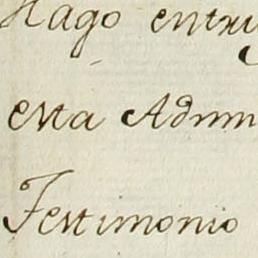 Hago entre
esta Admin
Testimonio